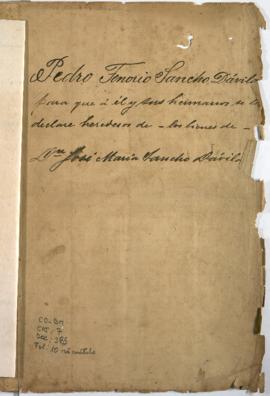 Pedro Tenorio Sancho Dávila
para que á él y sus hermanos se les
declare herederos de los bienes de
Dn José María Sancho Dávila
CO-BM
CAJ: 7
DOC: 385
Fol: 10 + carátula